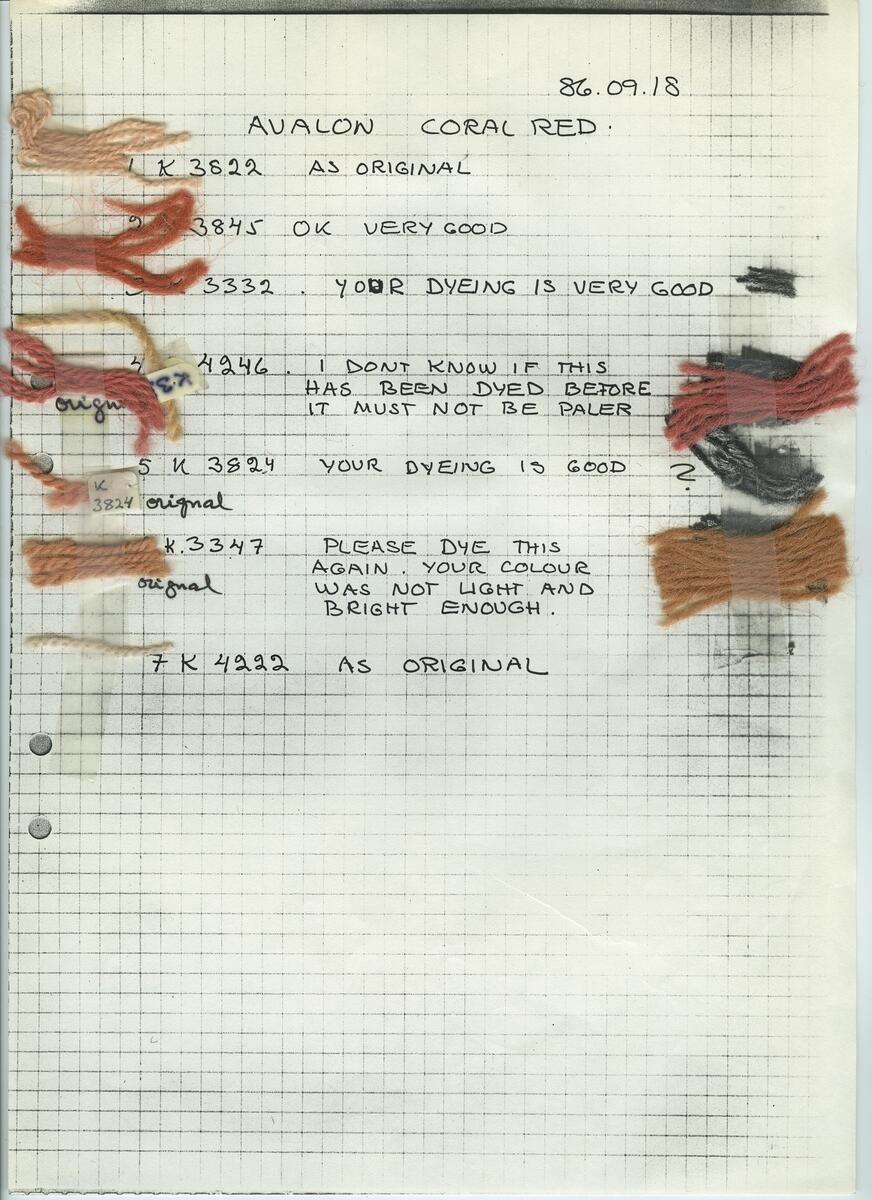 86.09.18
AVALON CORAL RED.
1 K 3822 AS ORIGINAL
2 3845 OK VERY GOOD
3 K 3332 . YOUR DYEING IS VERY GOOD
4 4246 . I DONT KNOW IF THIS
HAS BEEN DYED BEFORE
IT MUST NOT BE PALER
5 K 3824 YOUR DYEING IS GOOD ?
K
3824 orignal
K.3347 PLEASE DYE THIS
AGAIN. YOUR COLOUR
orignal WAS NOT LIGHT AND
BRIGHT ENOUGH.
7 K 4222 AS ORIGINAL